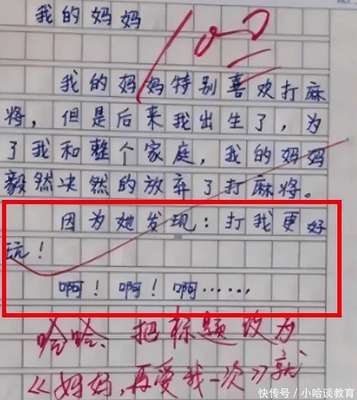 我的妈妈
100
我的妈妈特别喜欢打麻
将，但是后来我出生了，为
了我和整个家庭，我的妈妈
毅然决然的放弃了打麻将。
因为她发现：打我更好
玩！
啊！啊！啊……
哈哈、把标题改为
《妈妈，再爱我一次》就
快传号 / 小哈谈教育